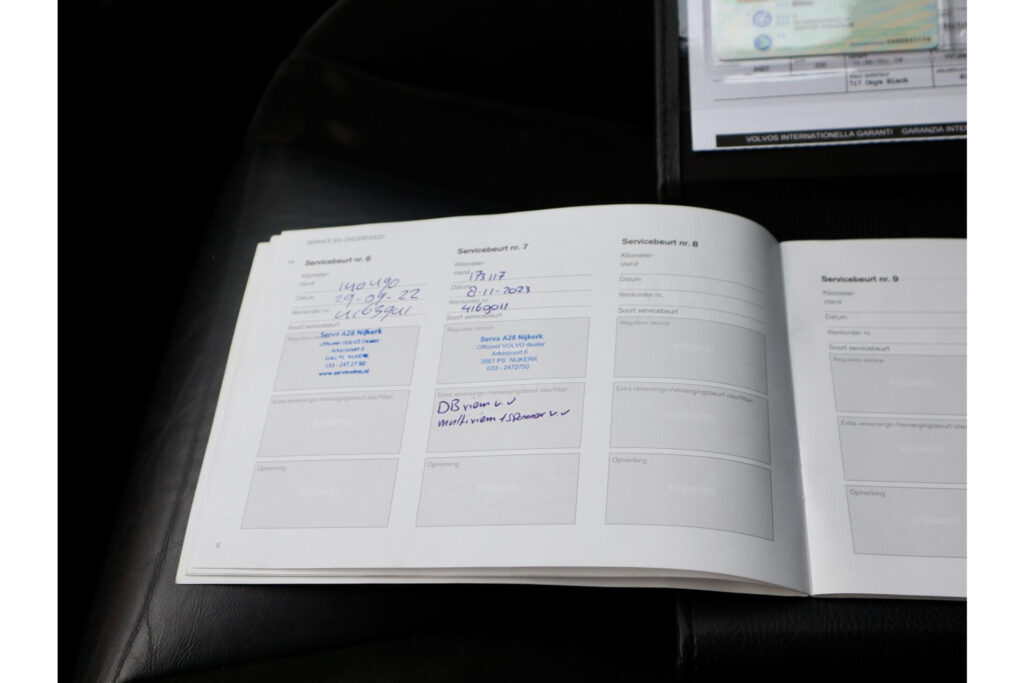 717 Onyx Black
VOLVOS INTERNATIONELLA GARANTI GARANZIA INTE
SERVICE EN ONDERHOUD
Servicebeurt nr. 6
Kilometer-
stand
Datum 29-09-22
Werkorder nr.
Soort servicebeurt
Reguliere service
Serva A28 Nijkerk
Officieel VOLVO dealer
Arkerpoort 6
3861 PS NIJKERK
033 - 247 27 50
Extra verversings-/vervangingsbeurt olie/filter:
STEMPEL
Opmerking
STEMPEL
8
Servicebeurt nr. 7
Kilometer-
stand 173117
Datum 8-11-2023
Werkorder nr.
Soort servicebeurt
Reguliere service
Serva A28 Nijkerk
Officieel VOLVO dealer
Arkerpoort 6
3861 PS NIJKERK
033 - 2472750
Extra verversings-/vervangingsbeurt olie/filter:
DB riem v.v
multiriem + spanner v.v
Opmerking
STEMPEL
Servicebeurt nr. 8
Kilometer-
stand
Datum
Werkorder nr.
Soort servicebeurt
Reguliere service
STEMPEL
Extra verversings-/vervangingsbeurt olie/filter:
STEMPEL
Opmerking
STEMPEL
Servicebeurt nr. 9
Kilometer-
stand
Datum
Werkorder nr.
Soort servicebeurt
Reguliere service
STEMPEL
Extra verversings-/vervangingsbeurt olie
STEMPEL
Opmerking
STEMPEL